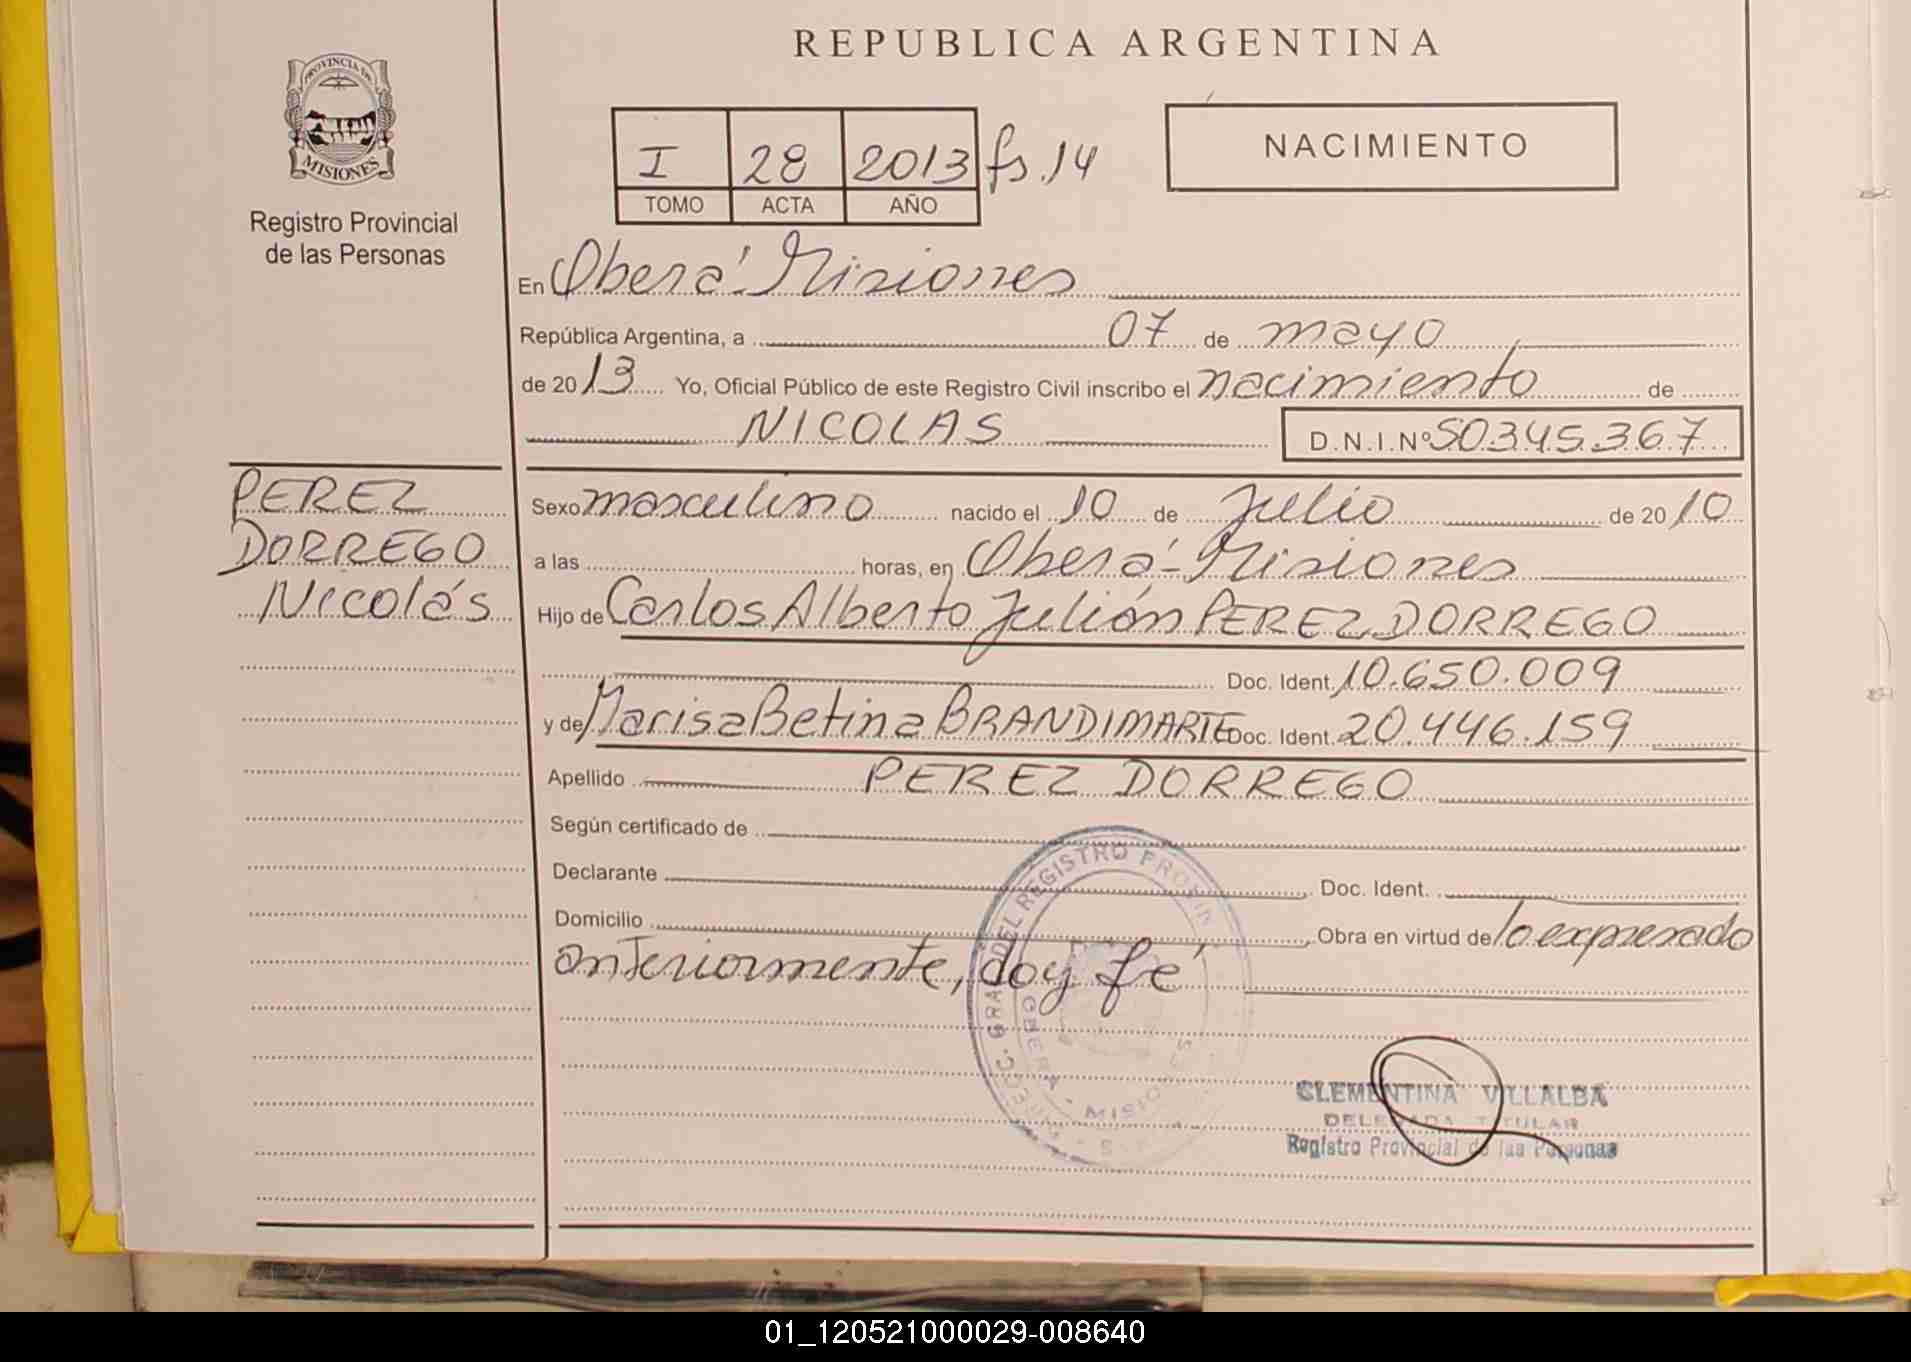 REPUBLICA ARGENTINA
PROVINCIA DE
MISIONES
Registro Provincial
de las Personas
I 28 2013 fs. 14
TOMO ACTA AÑO
NACIMIENTO
En Oberá - Misiones
República Argentina, a 07 de mayo
de 2013 Yo, Oficial Público de este Registro Civil inscribo el nacimiento de
NICOLAS D.N.I.Nº 50.345.367
PEREZ
DORREGO
Nicolás
Sexo masculino nacido el 10 de Julio de 2010
a las horas, en Oberá - Misiones
Hijo de Carlos Alberto Julián PEREZ DORREGO
Doc. Ident. 10.650.009
y de Marisa Betina BRANDIMARTE Doc. Ident. 20.446.159
Apellido PEREZ DORREGO
Según certificado de
Declarante Doc. Ident.
Domicilio Obra en virtud de lo expresado
anteriormente, doy fé
DEL REGISTRO PROVIN
OBERA - MISIONES
CLEMENTINA VILLALBA
DELEGADA TITULAR
Registro Provincial de las Personas
01_120521000029-008640